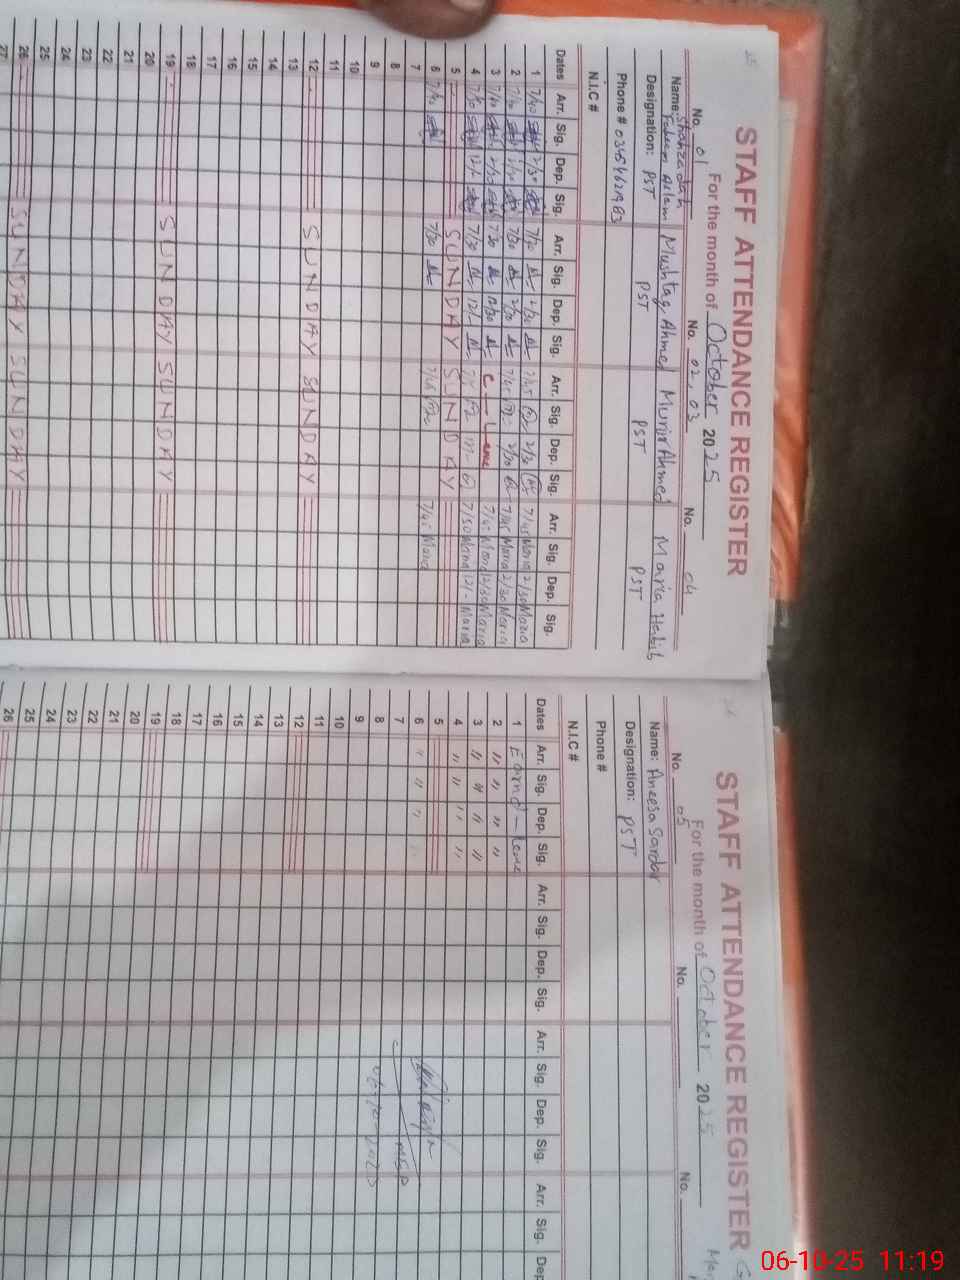 STAFF ATTENDANCE REGISTER
For the month of October 2025
No. 01 No. 02, 03 No. 04
Name: Shahzadah Faheem Aslam Mushtaq Ahmed Munir Ahmed Maria Habib
Designation: PST PST PST PST
Phone #
N.I.C #
Dates Arr. Sig. Dep. Sig. Arr. Sig. Dep. Sig. Arr. Sig. Dep. Sig. Arr. Sig. Dep. Sig.
1 7/30 2/30 7/30 2/30 7/45 2/30 7/45 Maria 2/30 Maria
2 7/30 2/30 7/30 2/30 7/45 2/30 7/45 Maria 2/30 Maria
3 7/30 7/30 12/30 C — Leave 7/45 Maria 12/30 Maria
4 7/30 12/- 7/30 12/- 7/50 Maria 12/- Maria
5 SUNDAY SUNDAY
6 7/30 7/30 7/45 7/45 Maria
7
8
9
10
11
12 SUNDAY SUNDAY
13
14
15
16
17
18
19 SUNDAY SUNDAY
20
21
22
23
24
25
26 SUNDAY SUNDAY
27
STAFF ATTENDANCE REGISTER
For the month of October 2025
No. 05 No. No.
Name: Aneesa Sardar
Designation: PST
Phone #
N.I.C #
Dates Arr. Sig. Dep. Sig. Arr. Sig. Dep. Sig. Arr. Sig. Dep. Sig. Arr. Sig. Dep
1 Earnd - Leave
2 " " " "
3 " " " "
4 " " " "
5
6 " " "
7
8
9
10
11
12
13
14
15
16
17
18
19
20
21
22
23
24
25
26
06-10-2025
06-10-25 11:19